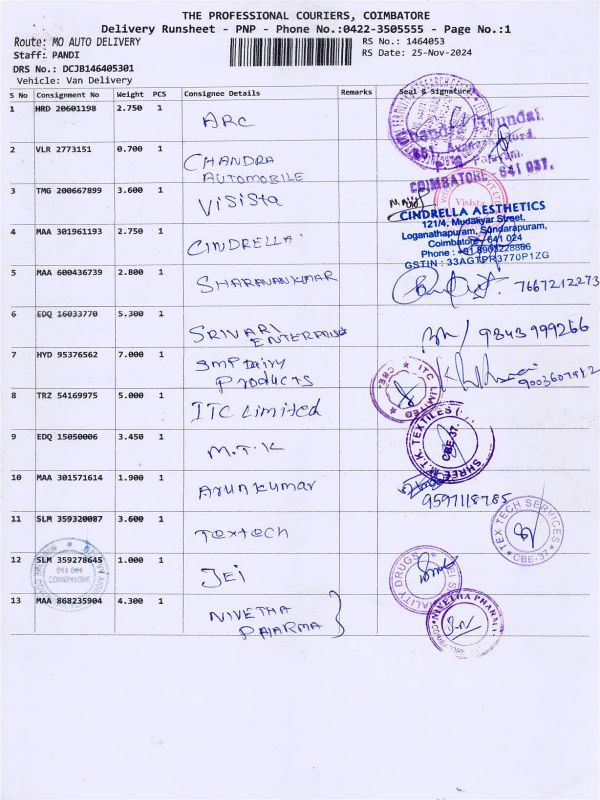 THE PROFESSIONAL COURIERS, COIMBATORE
Delivery Runsheet - PNP - Phone No.:0422-3505555 - Page No.:1
Route: MO AUTO DELIVERY
RS No.: 1464053
Staff: PANDI
RS Date: 25-Nov-2024
DRS No.: DCJB146405301
Vehicle: Van Delivery
S No Consignment No Weight PCS Consignee Details Remarks Seal & Signature
1 HRD 20601198 2.750 1 ARC
2 VLR 2773151 0.700 1 CHANDRA AUTOMOBILE
COIMBATORE - 641 037.
3 TMG 200667899 3.600 1 Visista
Visista
CINDRELLA AESTHETICS
121/4, Mudaliyar Street,
Loganathapuram, Sundarapuram,
Coimbatore - 641 024
Phone : +91 8903228806
GSTIN : 33AGTPR3770P1ZG
4 MAA 301961193 2.750 1 CINDRELLA
5 MAA 600436739 2.800 1 SHARAVANKUMAR 7667212273
6 EDQ 16033770 5.300 1 SRIVARI ENTERPRISES 9843999266
7 HYD 95376562 7.000 1 SMP Dairy Products
8 TRZ 54169975 5.000 1 ITC Limited
ITC LIMITED CBE.
9 EDQ 15050006 3.450 1 M.T.K
SHREE M.T.K TEXTILES CBE-37.
10 MAA 301571614 1.900 1 Arunkumar 9597118785
11 SLM 359320087 3.600 1 Textech
TEX TECH SERVICES CBE-37
12 SLM 359278645 1.000 1 JEI
13 MAA 868235904 4.300 1 NIVETHA PHARMA
NIVETHA PHARMA